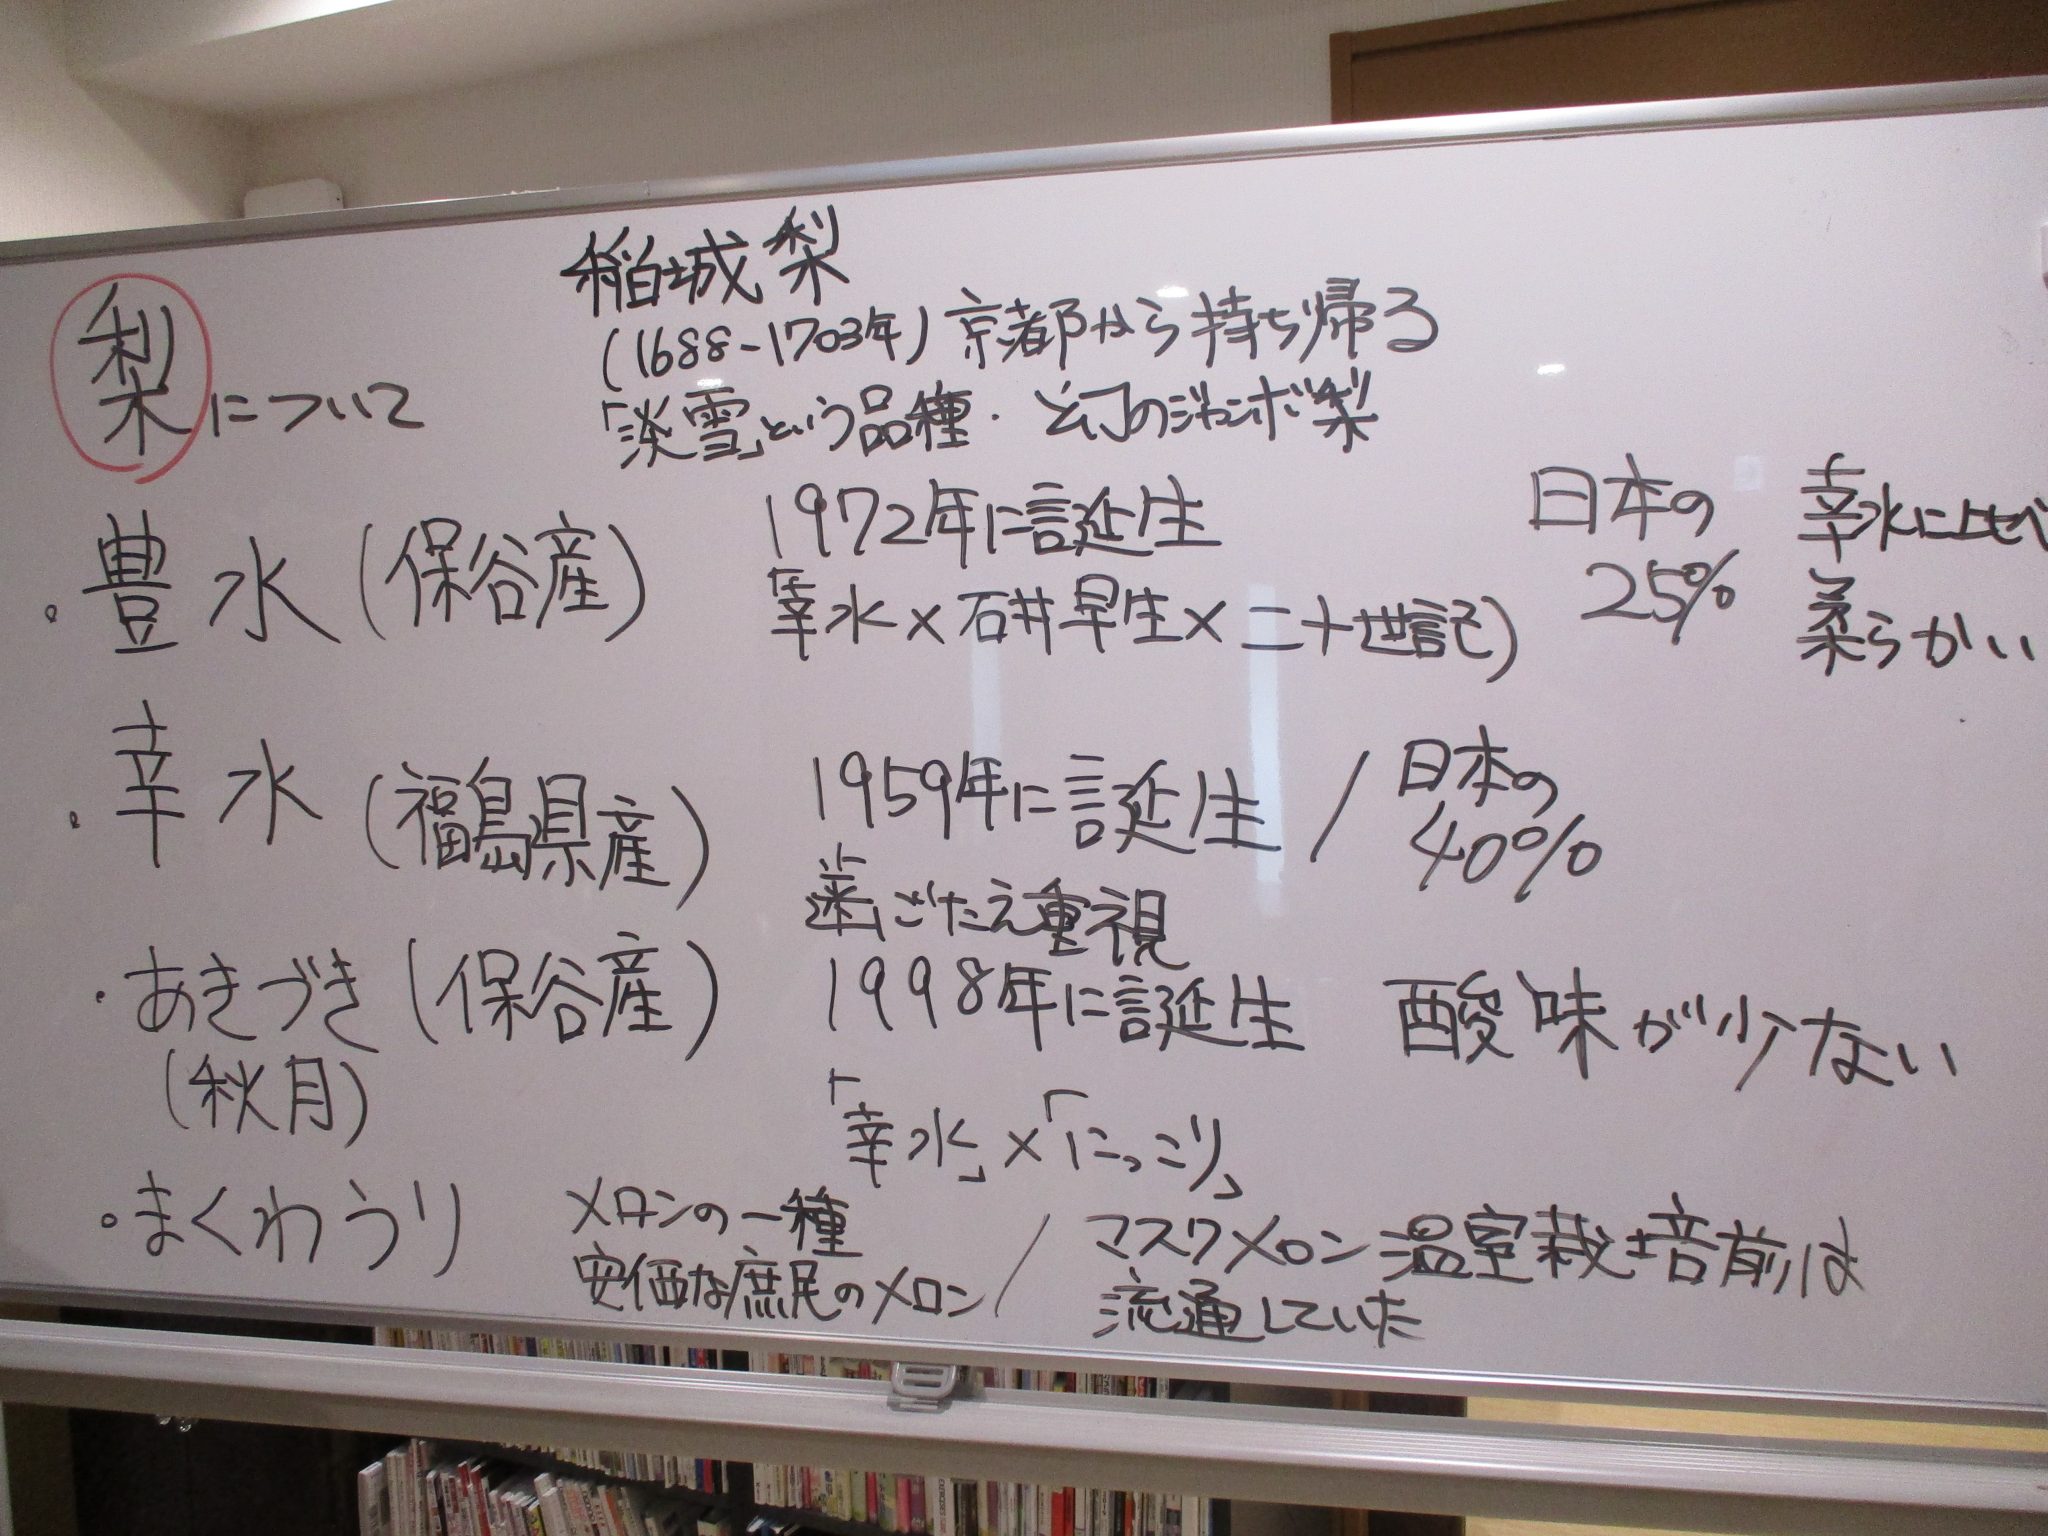 梨について
稲城梨
(1688-1703年)京都から持ち帰る
「淡雪」という品種・幻のジャンボ梨
・豊水(保谷産)
1972年に誕生
「幸水×石井早生×二十世記)
日本の
25%
幸水に比べ
柔らかい
・幸水(福島県産)
1959年に誕生/
日本の
40%
歯ごたえ重視
・あきづき(保谷産)
(秋月)
1998年に誕生
酸味が少ない
「幸水」×「にっこり」
・まくわうり
メロンの一種
安価な庶民のメロン/
マスクメロン温室栽培前は
流通していた